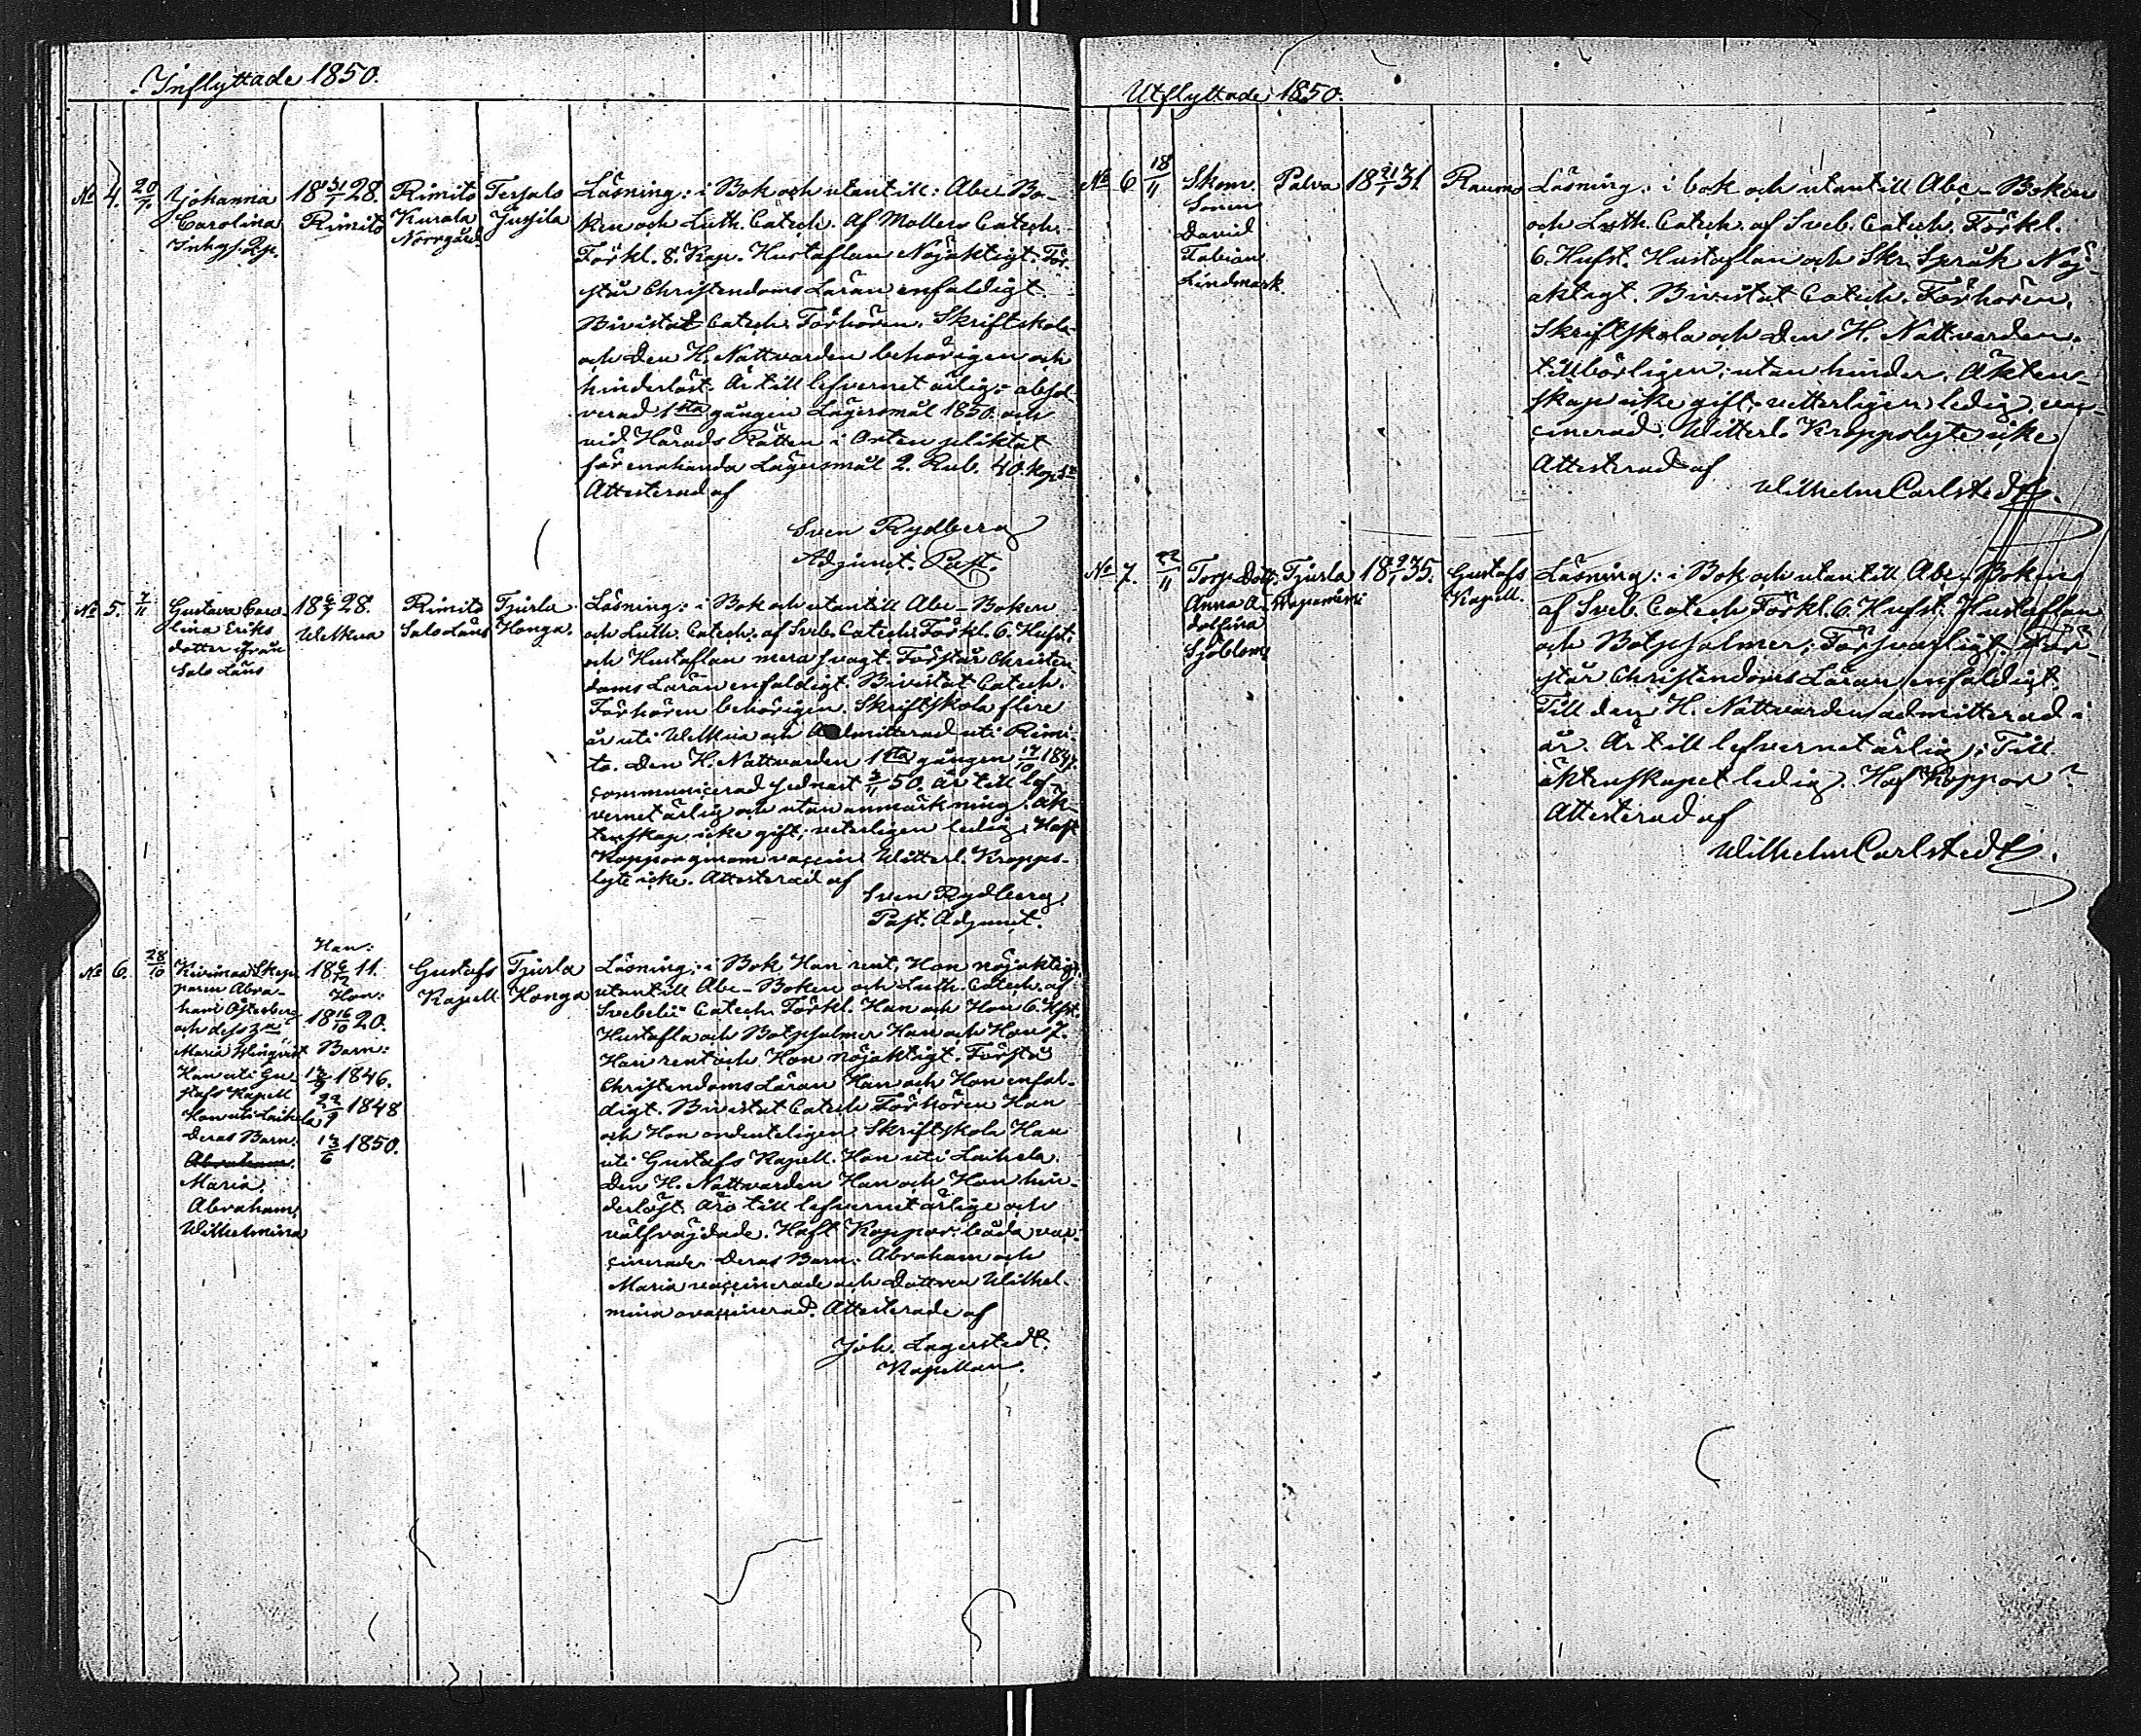 Inflyttade 1850.
No 4. 20/7.
Johanna
Carolina
Inhgs. Dr.
18 31/1 28.
Rimito
Rimito
Kurala
Norrgård
Tersalo
Jussila
Läsning: i Bok och utantill: Abc-Bo-
ken och Luth. Catech. Af Mollers Catech.
Förkl. 8. Kap. Hustaflan Nöjaktigt. För-
står Christendoms Läran enfaldigt.
Bivistat Catech. Förhören. Skriftskola
och den H. Nattvarden behörigen och
hinderlöst. Är till lefvernet ärlig; absol-
verad 1sta gången Lägersmål 1850. och
vid Härads Rätten i Orten pliktat
för enahanda Lägersmål 2. Rub. 40. kop. Sr
Attesterad af
Sven Rydberg
Adjunct. Past.
No 5. 7/11
Gustava Caro-
lina Eriks
dotter ifrån
Salo Läns
18 6/7 28.
Welkua
Rimito
Salo Läns
Tjurla
Honga.
Läsning: i Bok och utantill Abc-Boken
och Luth. Catech. af Sveb. Catech. Förkl. 6. Hufst.
och Hustaflan mera svagt. Förstår Christen
doms Läran enfaldigt. Bivistat Catech.
Förhören behörigen. Skriftskola flere
år uti Welkua och Admitterad uti Rimi-
to. Den H. Nattvarden 1sta gången 17/10 1847.
communicerad sednast 3/11 50. är till lef
vernet ärlig och utan anmärkning. äk-
tenskap icke gift; veterligen ledig. Haft
Koppor genom vaccin. Witterl. Kropps-
lyte icke. Attesterad af
Sven Rydberg
Past. Adjunct.
No 6. 28/10
Kivimaa Skep
paren Abra-
ham Österberg
och dess
Maria
Han uti Gu-
stafs Kapell
Hon uti Laihela
Deras Barn:
Abraham.
Maria
Abraham,
Wilhelmina
Han:
18 6/12 11.
Hon:
18 16/10 20.
Barn:
1846.
22/9 1848
1850.
Gustafs
Kapell
Tjurla
Honga
Läsning: i Bok Han rent, Hon nöjaktigt,
utantill Abc-Boken och Luth. Catech. af
Svebelii Catech. Förkl. Han och Hon 6. Hfst.
Hustafla och Botpsalmer Han och Hon 7.
Han rent och Hon nöjaktigt. Förstå
Christendoms Läran Han och Hon enfal-
digt. Bivistat Catech Förhören Han
och Hon ordenteligen Skriftskola Han
uti Gustafs Kapell. Hon uti Laihela.
Den H. Nattvarden Han och Hon hin-
derlöst. Äro till lefvernet ärlige och
välfräjdade. Haft Koppor: båda vac-
cinerade. Deras Barn: Abraham och
Maria vaccinerade och Dottren Wilhel-
mina ovaccinerad. Attesterade af
Joh. Lagerstedt.
Kapellan.
Utflyttade 1850.
No 6 18/11
Skom.
Sonen
David
Fabian
Lindmark.
Palva
18 21/1 31.
Raumo
Läsning: i bok och utantill Abc-Boken
och Luth. Catech. af Sveb. Catech. Förkl.
6. Hufst. Hustaflan och Skr. Språk Nöj-
aktigt. Bivistat Catech. Förhören,
Skriftskola och den H. Nattvarden
tillbörligen; utan hinder. Äkten-
skap icke gift; vetterligen ledig, vac-
cinerad. Witterl. Kroppslyte icke
Attesterad af
Wilhelm Carlstedt.
No 7. 22/11
Torp. Dott.
Anna A-
dolfina
Sjöblom
Tjurla
18 9/1 35.
Gustafs
Kapell.
Läsning: i Bok och utantill Abc-Boken
af Sveb. Catech Förkl. 6. Hufst. Hustaflan
och Botpsalmer; Försvarligt. För-
står Christendoms Läran enfaldigt.
Till den H. Nattvarden admitterad i
år. Är till lefvernet ärlig; Till
äktenskapet ledig. Haf Koppor?
Attesterad af
Wilhelm Carlstedt.